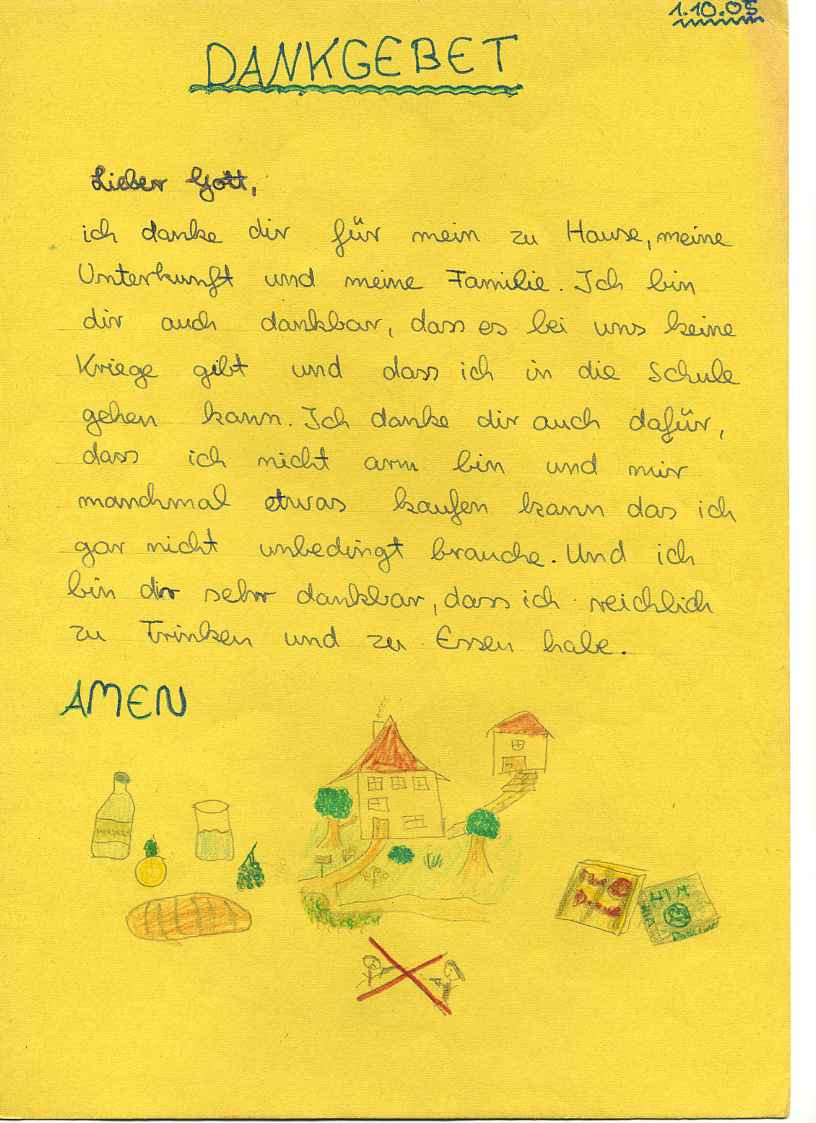 1.10.05
DANKGEBET
Lieber Gott,
ich danke dir für mein zu Hause, meine
Unterkunft und meine Familie. Ich bin
dir auch dankbar, dass es bei uns keine
Kriege gibt und dass ich in die Schule
gehen kann. Ich danke dir auch dafür,
dass ich nicht arm bin und mir
manchmal etwas kaufen kann das ich
gar nicht unbedingt brauche. Und ich
bin dir sehr dankbar, dass ich reichlich
zu Trinken und zu Essen habe.
AMEN